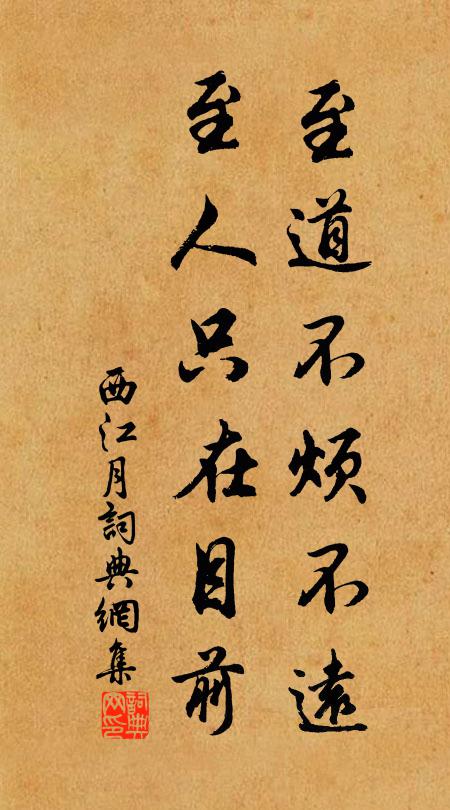 至道不烦不遠
至人只在目前
西江月詞典網集
詞典网印